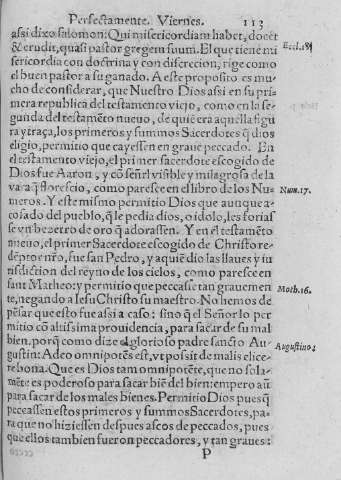 Perfectamente. Viernes. 113
assi dixo salomon: Qui misericordiam habet, docet
& erudit, quasi pastor gregem suum. El que tiene mi
sericordia con doctrina y con discrecion, rige como
el buen pastor a su ganado. A este proposito es mu
cho de considerar, que Nuestro Dios assi en su pri
mera republica del testamento viejo, como en la se
gunda del testamẽto nueuo, de quiẽ era aquella figu
ra y traça, los primeros y summos Sacerdotes q̃ dios
eligio, permitio que cayessen en graue peccado. En
el testamento viejo, el primer sacerdote escogido de
Dios fue Aaron, y cõ señal visible y milagrosa de la
vara q̃ florescio, como paresce en el libro de los Nu
meros. Y este mismo permitio Dios que aunque a-
cosado del pueblo, q̃ le pedia dios, o idolo, les forjas
se vn bezerro de oro q̃ adorassen. Y en el testamẽto
nueuo, el primer Sacerdote escogido de Christo re-
dẽptor nr̃o, fue san Pedro, y a quiẽ dio las llaues y iu
risdiction del reyno de los cielos, como paresce en
sant Matheo: y permitio que peccasse tan grauemen
te, negando a Iesu Christo su maestro. No hemos de
pẽsar que esto fue assi a caso: sino q̃ el Señor lo per
mitio cõ altissima prouidencia, para sacar de su mal
bien. porq̃ como dize el glorioso padre sancto Au
gustin: Adeo omnipotẽs est, vt possit de malis elice-
re bona. Que es Dios tam omnipotẽte, que no sola-
mẽte es poderoso para sacar biẽ del bien: empero aũ
para sacar de los males bienes. Permitio Dios pues q̃
peccassen estos primeros y summos Sacerdotes, pa-
ra que no hiziessen despues ascos de peccados, pues
que ellos tambien fueron peccadores, y tan graues:
P
Eccl. 18
Num. 17.
Math. 16.
Augustino